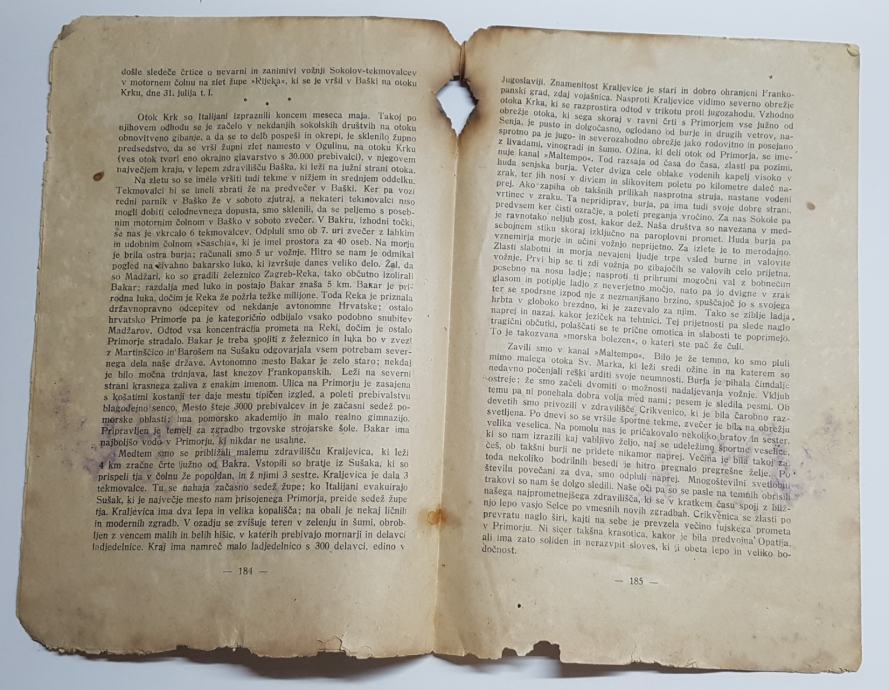 došle sledeče črtice o nevarni in zanimivi vožnji Sokolov-tekmovalcev
v motornem čolnu na zlet župe »Rijeka«, ki se je vršil v Baški na otoku
Krku, dne 31. julija t. l.
* * *
Otok Krk so Italijani izpraznili koncem meseca maja. Takoj po
njihovem odhodu se je začelo v nekdanjih sokolskih društvih na otoku
obnovitveno gibanje, a da se to delo pospeši in okrepi, je sklenilo župno
predsedstvo, da se vrši župni zlet namesto v Ogulinu, na otoku Krku
(ves otok tvori eno okrajno glavarstvo s 30.000 prebivalci), v njegovem
največjem kraju, v lepem zdravilišču Baška, ki leži na južni strani otoka.
Na zletu so se imele vršiti tudi tekme v nižjem in srednjem oddelku.
Tekmovalci bi se imeli zbrati že na predvečer v Baški. Ker pa vozi
redni parnik v Baško že v soboto zjutraj, a nekateri tekmovalci niso
mogli dobiti celodnevnega dopusta, smo sklenili, da se peljemo s poseb-
nim motornim čolnom v Baško v soboto zvečer. V Bakru, izhodni točki,
se nas je vkrcalo 6 tekmovalcev. Odpluli smo ob 7. uri zvečer z lahkim
in udobnim čolnom »Saschia«, ki je imel prostora za 40 oseb. Na morju
je brila ostra burja; računali smo 5 ur vožnje. Hitro se nam je odmikal
pogled na živahno bakarsko luko, ki izvršuje danes veliko delo. Žal, da
so Madžari, ko so gradili železnico Zagreb-Reka, tako občutno izolirali
Bakar; razdalja med luko in postajo Bakar znaša 5 km. Bakar je pri-
rodna luka, dočim je Reka požrla težke milijone. Toda Reka je priznala
državnopravno odcepitev od nekdanje avtonomne Hrvatske; ostalo
hrvatsko Primorje pa je kategorično odbijalo vsako podobno snubitev
Madžarov. Odtod vsa koncentracija prometa na Reki, dočim je ostalo
Primorje stradalo. Bakar je treba spojiti z železnico in luka bo v zvezi
z Martinščico in Barošem na Sušaku odgovarjala vsem potrebam sever-
nega dela naše države. Avtonomno mesto Bakar je zelo staro; nekdaj
je bilo močna trdnjava, last knezov Frankopanskih. Leži na severni
strani krasnega zaliva z enakim imenom. Ulica na Primorju je zasajena
s košatimi kostanji ter daje mestu tipičen izgled, a poleti prebivalstvu
blagodejno senco. Mesto šteje 3000 prebivalcev in je začasni sedež po-
morske oblasti; ima pomorsko akademijo in malo realno gimnazijo.
Pripravljen je temelj za zgradbo trgovske strojarske šole. Bakar ima
najboljšo vodo v Primorju, ki nikdar ne usahne.
Medtem smo se približali malemu zdravilišču Kraljevica, ki leži
4 km zračne črte južno od Bakra. Vstopili so bratje iz Sušaka, ki so
prispeli tja v čolnu že popoldan, in ž njimi 3 sestre. Kraljevica je dala 3
tekmovalce. Tu se nahaja začasno sedež župe; ko Italijani evakuirajo
Sušak, ki je največje mesto nam prisojenega Primorja, preide sedež župe
tja. Kraljevica ima dva lepa in velika kopališča; na obali je nekaj ličnih
in modernih zgradb. V ozadju se zvišuje teren v zelenju in šumi, obrob-
ljen z vencem malih in belih hišic, v katerih prebivajo mornarji in delavci
ladjedelnice. Kraj ima namreč malo ladjedelnico s 300 delavci, edino v
— 184 —
Jugoslaviji. Znamenitost Kraljevice je stari in dobro ohranjeni Franko-
panski grad, zdaj vojašnica. Nasproti Kraljevice vidimo severno obrežje
otoka Krka, ki se razprostira odtod v trikotu proti jugozahodu. Vzhodno
obrežje otoka, ki sega skoraj v ravni črti s Primorjem vse južno od
Senja, je pusto in dolgočasno, oglodano od burje in drugih vetrov, na-
sprotno pa je jugo- in severozahodno obrežje jako rodovitno in posejano
z livadami, vinogradi in šumo. Ožina, ki deli otok od Primorja, se ime-
nuje kanal »Maltempo«. Tod razsaja od časa do časa, zlasti pa pozimi,
huda senjska burja. Veter dviga cele oblake vodenih kapelj visoko v
zrak, ter jih nosi v divjem in slikovitem poletu po kilometre daleč na-
prej. Ako zapiha ob takšnih prilikah nasprotna struja, nastane vodeni
vrtinec v zraku. Ta nepridiprav, burja, pa ima tudi svoje dobre strani,
predvsem ker čisti ozračje, a poleti preganja vročino. Za nas Sokole pa
je ravnotako neljub gost, kakor dež. Naša društva so navezana v med-
sebojnem stiku skoraj izključno na paroplovni promet. Huda burja pa
vznemirja morje in učini vožnjo neprijetno. Za izlete je to merodajno.
Zlasti slabotni in morja nevajeni ljudje trpe vsled burne in valovite
vožnje. Prvi hip se ti zdi vožnja po gibajočih se valovih celo prijetna,
posebno na nosu ladje; nasproti ti prihrumi mogočni val z bobnečim
glasom in potiplje ladjo z neverjetno močjo, nato pa jo dvigne v zrak
ter se spodrsne izpod nje z nezmanjšano brzino, spuščajoč jo s svojega
hrbta v globoko brezdno, ki je zazevalo za njim. Tako se ziblje ladja
naprej in nazaj, kakor jeziček na tehtnici. Tej prijetnosti pa slede naglo
tragični občutki, polaščati se te prične omotica in slabosti te poprimejo.
To je takozvana »morska bolezen«, o kateri ste pač že čuli.
Zavili smo v kanal »Maltempo«. Bilo je že temno, ko smo pluli
mimo malega otoka Sv. Marka, ki leži sredi ožine in na katerem so
nedavno počenjali reški arditi svoje neumnosti. Burja je pihala čimdalje
ostreje; že smo začeli dvomiti o možnosti nadaljevanja vožnje. Vkljub
temu pa ni ponehala dobra volja med nami; pesem je sledila pesmi. Ob
devetih smo privozili v zdravilišče Crikvenico, ki je bila čarobno raz-
svetljena. Po dnevi so se vršile športne tekme, zvečer je bila na obrežju
velika veselica. Na pomolu nas je pričakovalo nekoliko bratov in sester,
ki so nam izrazili kaj vabljivo željo, naj se udeležimo športne veselice,
češ, ob takšni burji ne pridete nikamor naprej. Večina je bila takoj za,
toda nekoliko bodrilnih besedi je hitro pregnalo pregrešne želje. Po
številu povečani za dva, smo odpluli naprej. Mnogoštevilni svetlobni
trakovi so nam še dolgo sledili. Naše oči pa so se pasle na temnih obrisih
našega najprometnejšega zdravilišča, ki se v kratkem času spoji z bliž-
njo lepo vasjo Selce po vmesnih novih zgradbah. Crikvenica se zlasti po
prevratu naglo širi, kajti na sebe je prevzela večino tujskega prometa
v Primorju. Ni sicer takšna krasotica, kakor je bila predvojna Opatija,
ali ima zato soliden in nerazvpit sloves, ki ji obeta lepo in veliko bo-
dočnost.
— 185 —